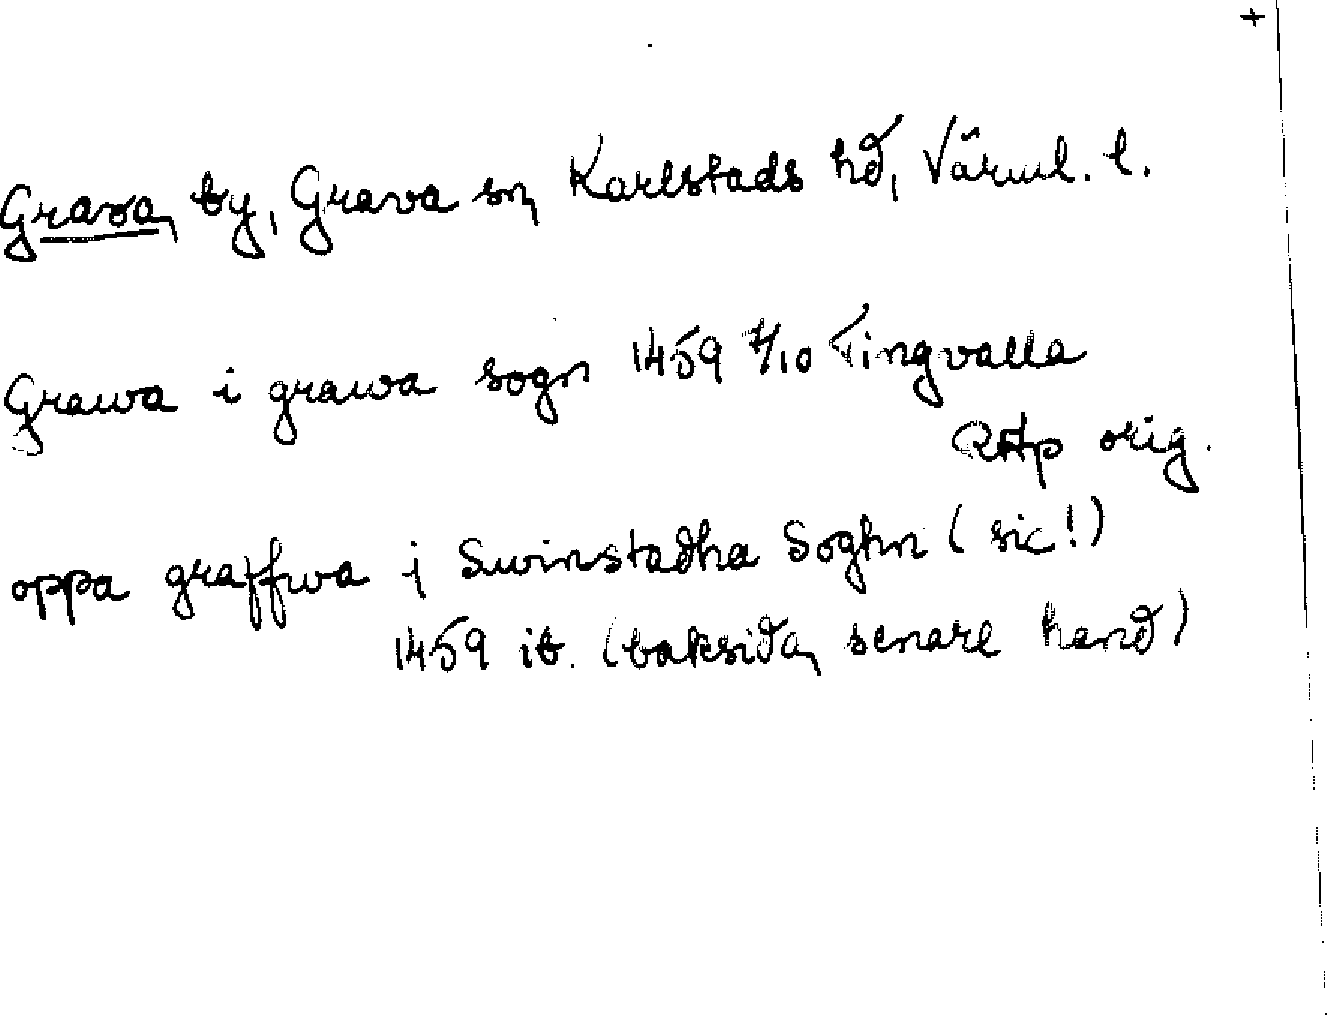 +
Grava, by, Grava sn, Karlstads hd, Värml. l.
Grawa i grawa sogn 1459 7/10 Tingvalla
RAp orig.
oppa graffwa j Swinstadha Soghn (sic!)
1459 ib. (baksida, senare hand)